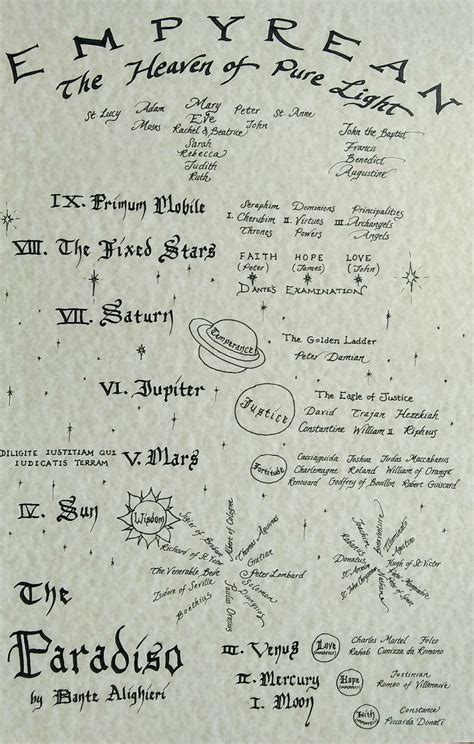 EMPYREAN
The Heaven of Pure Light
St. Lucy Adam Mary Peter St. Anne
Moses Eve John
Rachel & Beatrice
Sarah
Rebecca
Judith
Ruth
John the Baptist
Francis
Benedict
Augustine
IX. Primum Mobile
Seraphim Dominions Principalities
I. Cherubim II. Virtues III. Archangels
Thrones Powers Angels
VIII. The Fixed Stars
FAITH HOPE LOVE
(Peter) (James) (John)
DANTE'S EXAMINATION
VII. Saturn
Temperance
The Golden Ladder
Peter Damian
VI. Jupiter
Justice
The Eagle of Justice
David Trajan Hezekiah
Constantine William II Ripheus
DILIGITE IUSTITIAM QUI
IUDICATIS TERRAM
V. Mars
Fortitude
Cacciaguida Joshua Judas Maccabaeus
Charlemagne Roland William of Orange
Renouard Godfrey of Bouillon Robert Guiscard
IV. Sun
Wisdom
Siger of Brabant
Richard of St. Victor
The Venerable Bede
Isidore of Seville
Boethius
Albert of Cologne
Thomas Aquinas
Gratian
Peter Lombard
Solomon
Dionysius
Paulus Orosius
Illuminato
Agostino
Hugh of St. Victor
Bonaventure
Joachim
Rabanus
Donatus
St. Anselm
St. John Chrysostom
Nathan
The
Paradiso
by Dante Alighieri
III. Venus
Love
(IMPERFECT)
Charles Martel Folco
Rahab Cunizza da Romano
II. Mercury
Hope
(IMPERFECT)
Justinian
Romeo of Villeneuve
I. Moon
Faith
(IMPERFECT)
Constance
Piccarda Donati